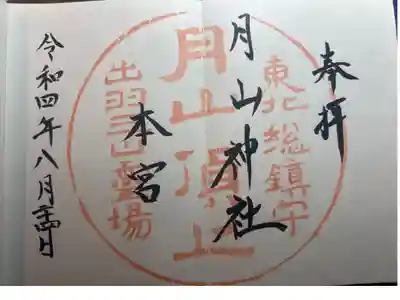 奉拝
月山神社
本宮
令和四年八月二十四日
東北総鎮守
月山頂上
出羽三山霊場